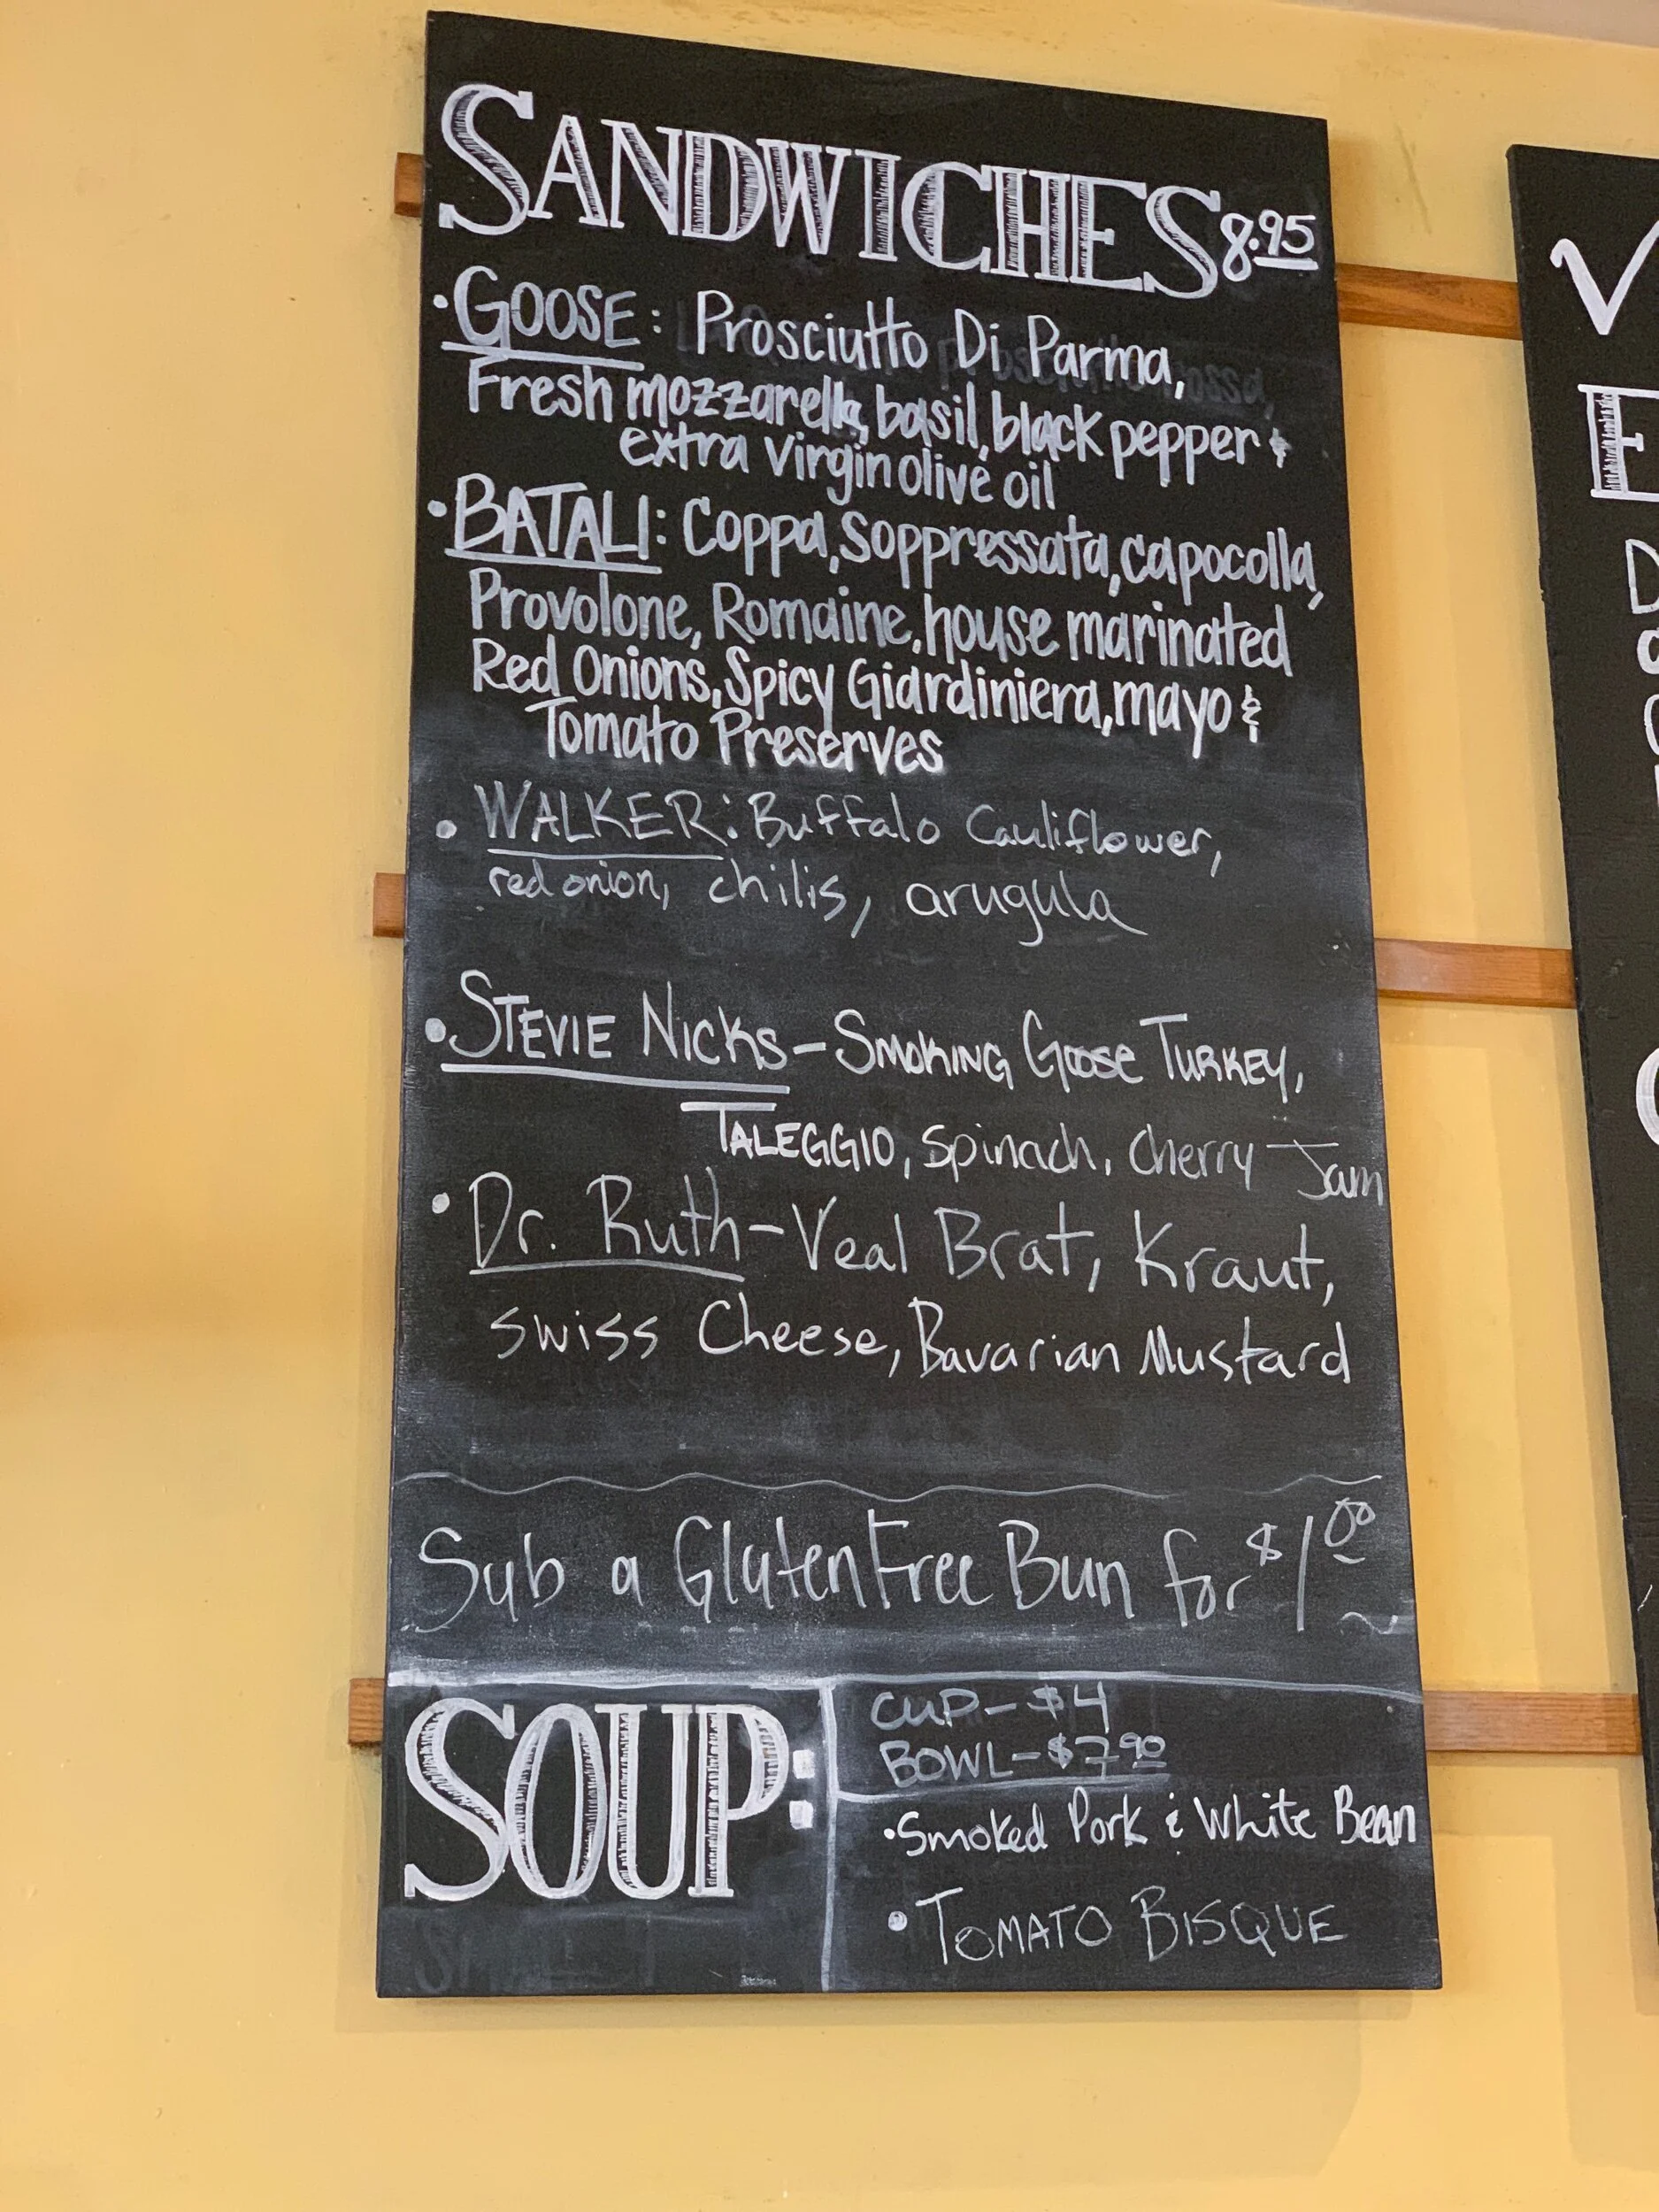 SANDWICHES 8.95
• GOOSE: Prosciutto Di Parma,
Fresh mozzarella, basil, black pepper &
extra virgin olive oil
• BATALI: Coppa, Soppressata, capocolla,
Provolone, Romaine, house marinated
Red Onions, Spicy Giardiniera, mayo &
Tomato Preserves
• WALKER: Buffalo Cauliflower,
red onion, chilis, arugula
• STEVIE NICKS - SMOKING GOOSE TURKEY,
TALEGGIO, spinach, cherry Jam
• Dr. Ruth - Veal Brat, Kraut,
swiss Cheese, Bavarian Mustard
Sub a Gluten Free Bun for $1.00
SOUP:
CUP - $4
BOWL - $7.90
• Smoked Pork & White Bean
• TOMATO BISQUE